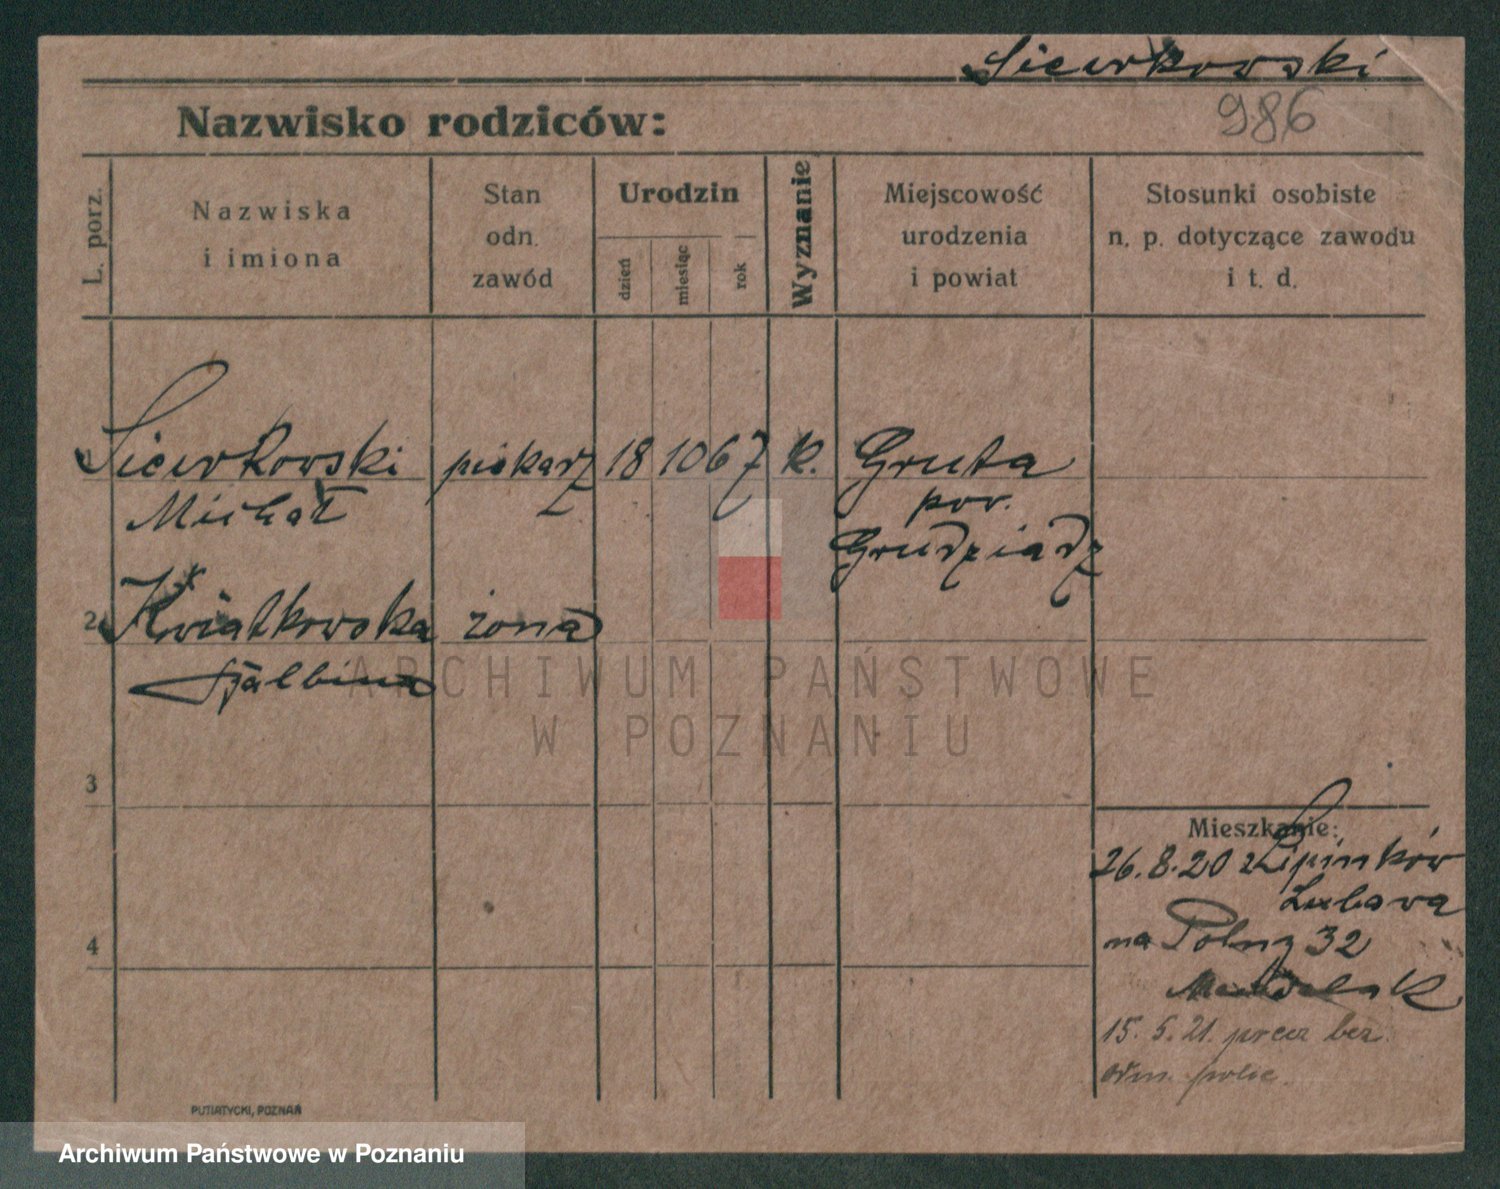 Sierkowski
986
Nazwisko rodziców:
L. porz.
Nazwiska
i imiona
Stan
odn.
zawód
Urodzin
dzień
miesiąc
rok
Wyznanie
Miejscowość
urodzenia
i powiat
Stosunki osobiste
n. p. dotyczące zawodu
i t. d.
Sierkowski piekarz 18 10 67 k. Gruta
Michał pow.
Grudziądz
2 Kwiatkowska żona
Balbina
ARCHIWUM PAŃSTWOWE
W POZNANIU
3
Mieszkanie:
26.8.20 z Lipinków
Lubawa
4
na Polną 32
15.5.21. precz bez
odm. polic.
PUTIATYCKI, POZNAŃ
Archiwum Państwowe w Poznaniu